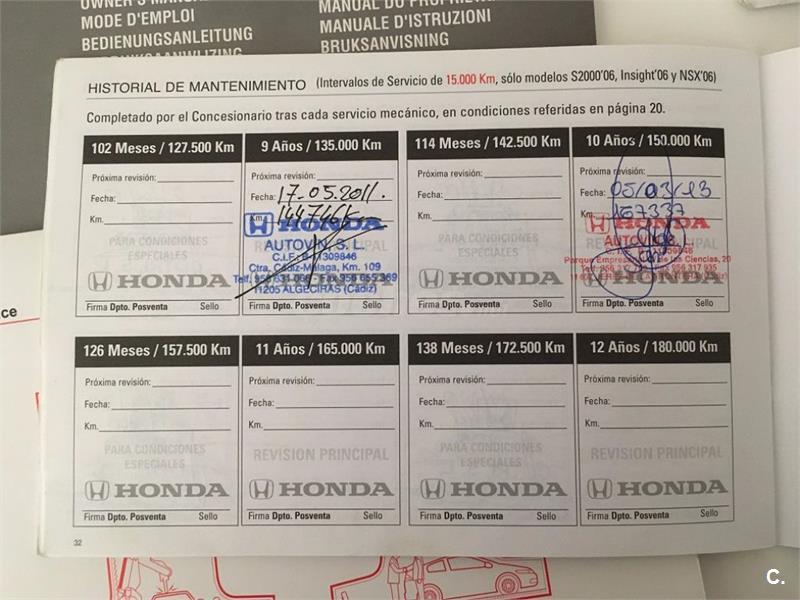 MODE D'EMPLOI
BEDIENUNGSANLEITUNG
MANUALE D'ISTRUZIONI
BRUKSANVISNING
HISTORIAL DE MANTENIMIENTO (Intervalos de Servicio de 15.000 Km, sólo modelos S2000'06, Insight'06 y NSX'06)
Completado por el Concesionario tras cada servicio mecánico, en condiciones referidas en página 20.
102 Meses / 127.500 Km
Próxima revisión:
Fecha:
Km.
PARA CONDICIONES
ESPECIALES
HONDA
Firma Dpto. Posventa Sello
9 Años / 135.000 Km
Próxima revisión:
Fecha: 17-05-2011.
Km.
HONDA
AUTOVIN, S. L.
Ctra. Cádiz-Málaga, Km. 109
11205 ALGECIRAS (Cádiz)
HONDA
Firma Dpto. Posventa Sello
114 Meses / 142.500 Km
Próxima revisión:
Fecha:
Km.
PARA CONDICIONES
ESPECIALES
HONDA
Firma Dpto. Posventa Sello
10 Años / 150.000 Km
Próxima revisión:
Fecha: 05/03/13
Km. 167337
HONDA
HONDA
Firma Dpto. Posventa Sello
126 Meses / 157.500 Km
Próxima revisión:
Fecha:
Km.
PARA CONDICIONES
ESPECIALES
HONDA
Firma Dpto. Posventa Sello
11 Años / 165.000 Km
Próxima revisión:
Fecha:
Km.
REVISION PRINCIPAL
HONDA
Firma Dpto. Posventa Sello
138 Meses / 172.500 Km
Próxima revisión:
Fecha:
Km.
PARA CONDICIONES
ESPECIALES
HONDA
Firma Dpto. Posventa Sello
12 Años / 180.000 Km
Próxima revisión:
Fecha:
Km.
REVISION PRINCIPAL
HONDA
Firma Dpto. Posventa Sello
32
C.